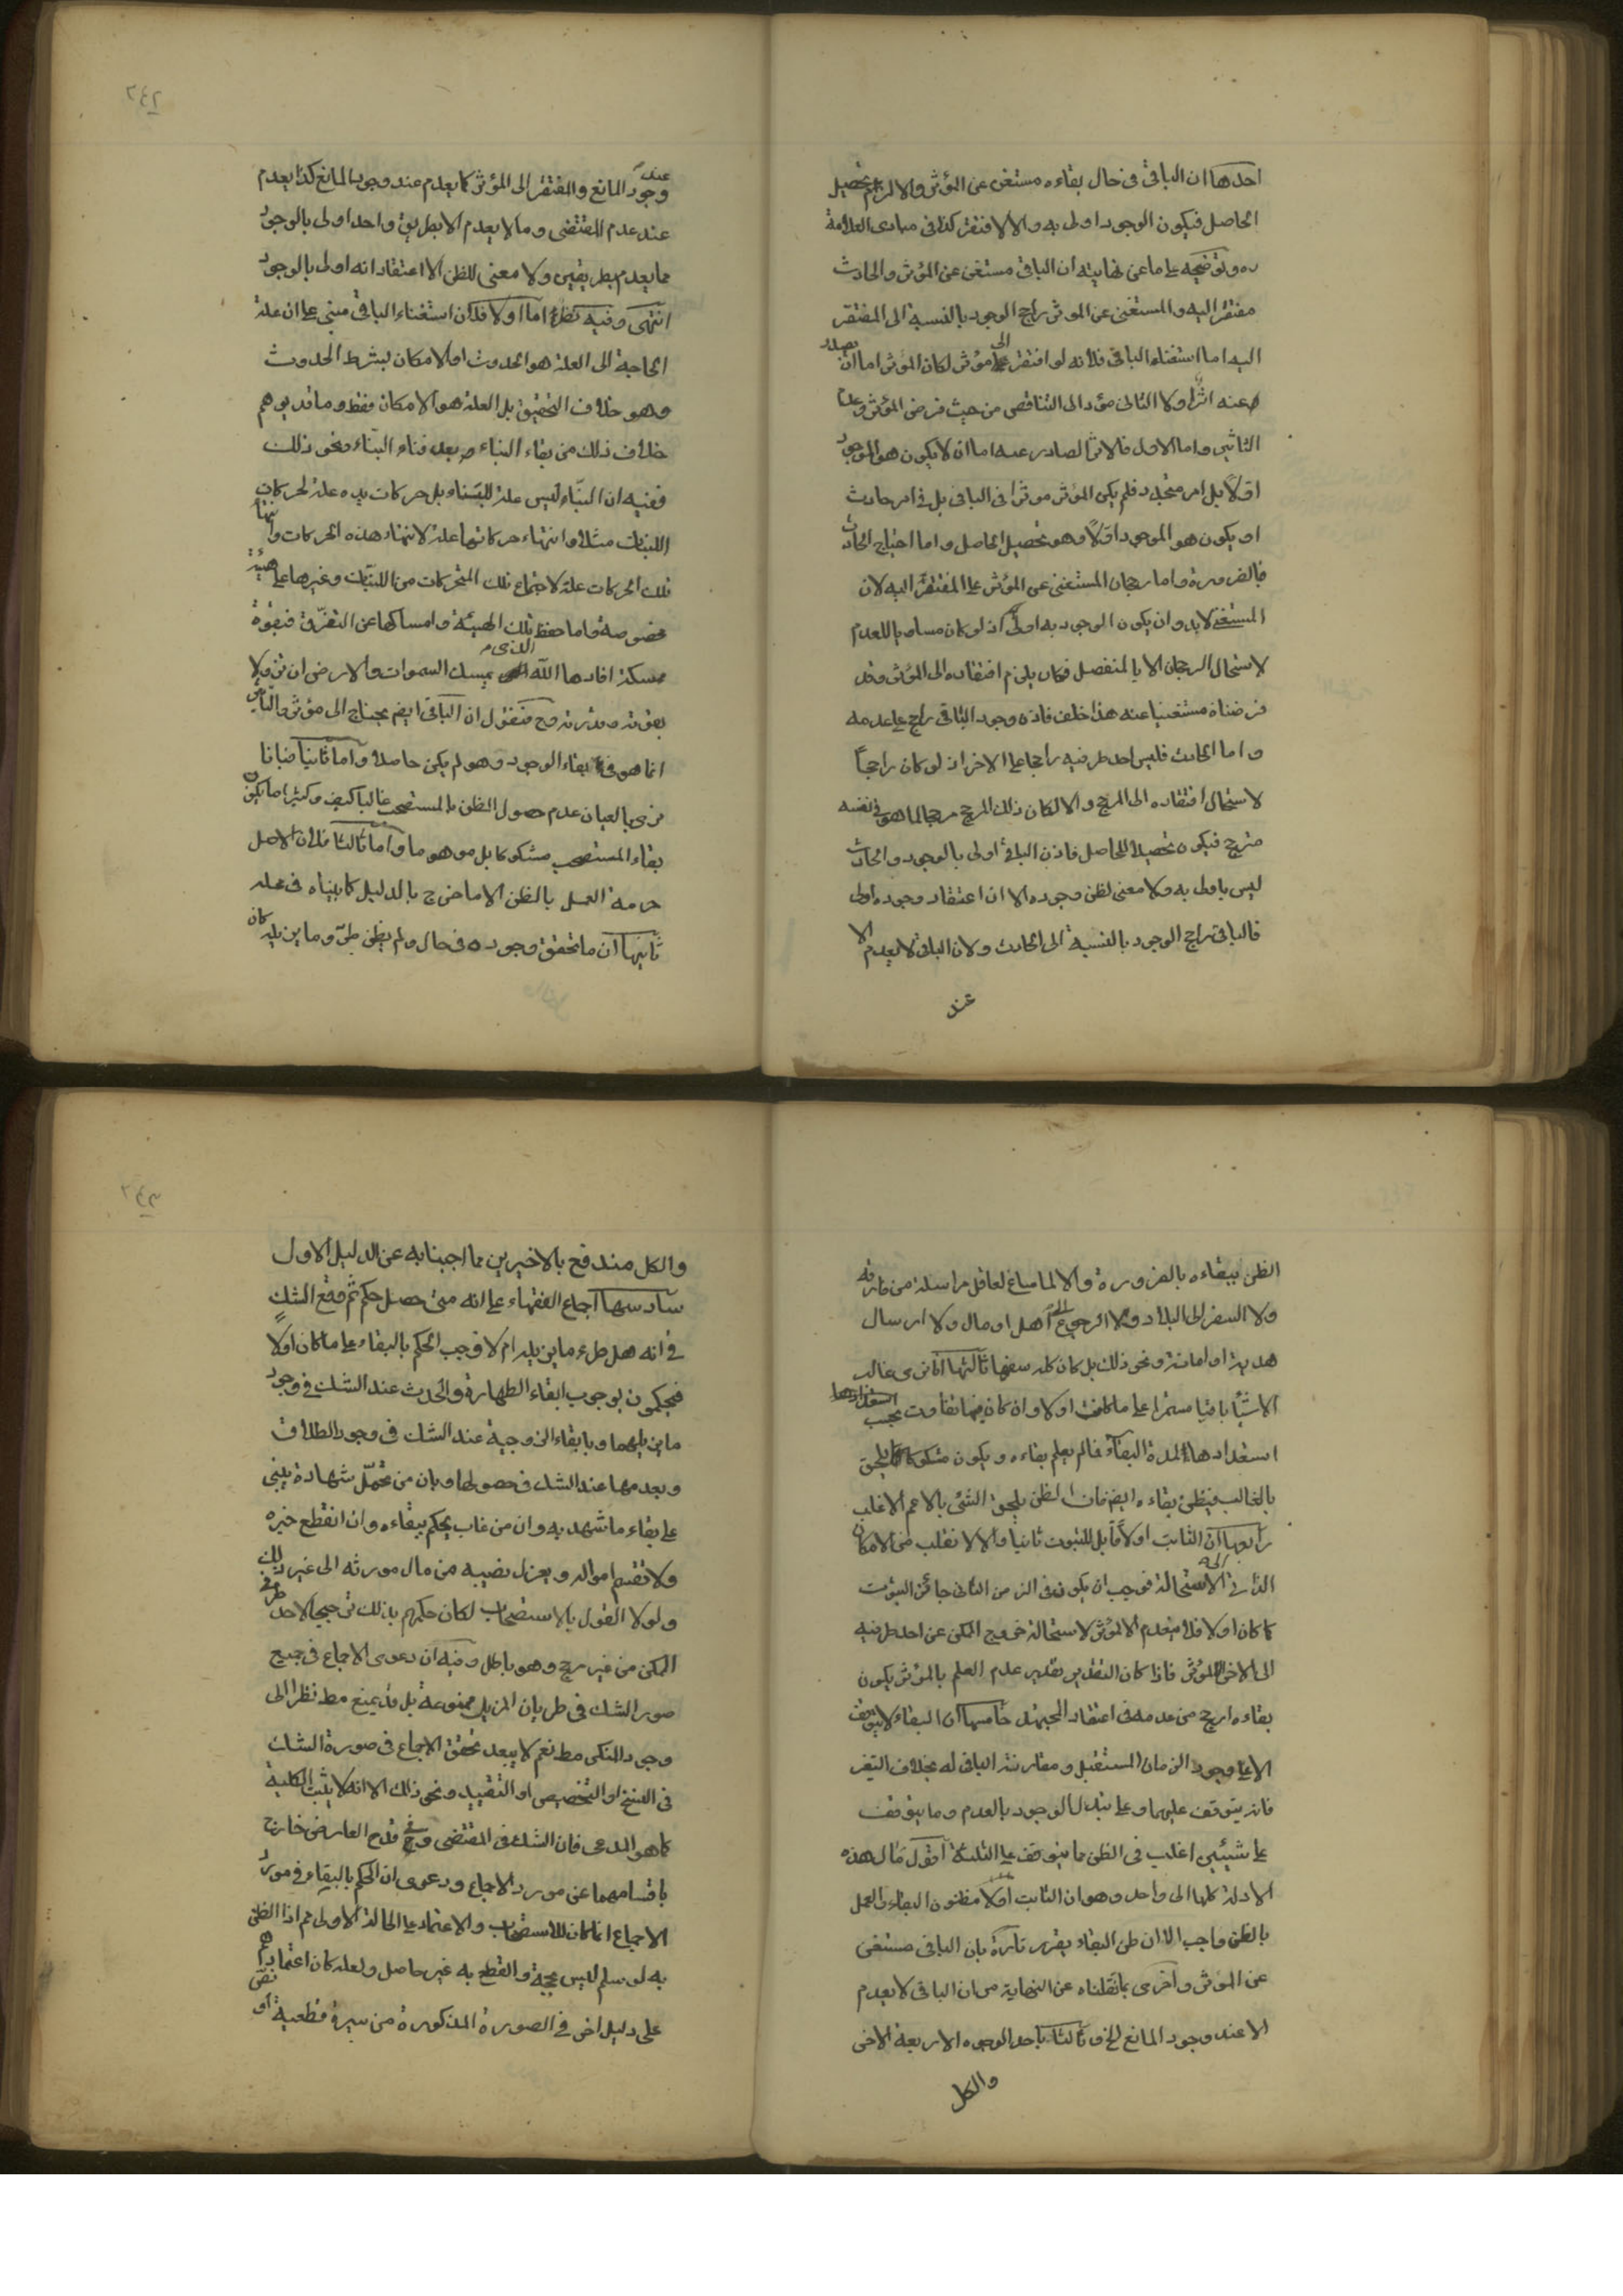 احدها ان الباقى فى حال بقاءه مستغن عن المؤثر والا لزم تحصيل
الحاصل فيكون الوجود اولى به والا لافتقر كذا فى مبادى العلامة
ره وتوضيحه على ما عن نهايته ان الباقى مستغن عن المؤثر والحادث
مفتقر اليه والمستغنى عن الموثر راجح الوجود بالنسبة الى المفتقر
اليه اما استغناء الباقى فلانه لو افتقر الى مؤثر لكان المؤثر اما ان يصدر
عنه اثر او لا الثانى مؤد الى التناقض من حيث فرض المؤثر وعدم
التاثير واما الاول فالاثر الصادر عنه اما ان لا يكون هو الموجود
اولاً بل امر متجدد فلم يكن المؤثر موثرا فى الباقى بل فى امر حادث
او يكون هو الموجود اولاً وهو تحصيل الحاصل واما احتياج الحادث
فبالضرورة واما رجحان المستغنى عن المؤثر على المفتقر اليه لان
المستغنى لابد وان يكون الوجود به اولى اذ لو كان مساويا للعدم
لاستحال الرجحان الا بالمنفصل فكان يلزم افتقاره الى المؤثر وقد
فرضناه مستغنيا عنه هذا خلف فاذن وجود الباقى راجح على عدمه
واما الحادث فليس احد طرفيه راجحا على الاخر اذ لو كان راجحاً
لاستحال افتقاره الى المرجح والا لكان ذلك المرجح مرجحا لما هو فى نفسه
مترجح فيكون تحصيلا للحاصل فاذن الباقى اولى بالوجود والحادث
ليس باولى به ولا معنى لظن وجوده الا ان اعتقاد وجوده اولى
فالباقى راجح الوجود بالنسبة الى الحادث ولان الباقى لا يعدم الا
عند
٢٤٢
عند وجود المانع والمفتقر الى المؤثر كما يعدم عند وجود المانع كذا يعدم
عند عدم المقتضى وما لا يعدم الا بطريق واحد اولى بالوجود
مما يعدم بطريقين ولا معنى للظن الا اعتقاد انه اولى بالوجود
انتهى وفيه نظر اما اولا فلان استغناء الباقى مبنى على ان علة
الحاجة الى العلة هو الحدوث او الامكان بشرط الحدوث
وهو خلاف التحقيق بل العلة هو الامكان فقط وما قد يوهم
خلاف ذلك من بقاء البناء بعد فناء البنّاء ونحو ذلك
ففيه ان البنّاء ليس علة للبناء بل حركات يده علة لحركات
اللبنات مثلا وانتهاء حركاتها علة لانتهاء هذه الحركات وانتهاء
تلك الحركات علة لاجتماع تلك المتحركات من اللبنات وغيرها على هيئة
مخصوصة واما حفظ تلك الهيئة وامساكها عن التفرّق فبقوة
ممسكة افادها الله الذى يمسك السموات والارض ان تزولا
بقوته وقدرته وح فنقول ان الباقى ايضم يحتاج الى مؤثر والتاثير
انما هو فى بقاء الوجود وهو لم يكن حاصلا واما ثانيا فبانا
نرى بالعيان عدم حصول الظن بالمستصحب غالبا كيف وكثيرا ما يكون
بقاء المستصحب مشكوكا بل موهوما واما ثالثا فلان الاصل
حرمة العمل بالظن الا ما خرج بالدليل كما بيناه فى محله
ثانيها ان ما تحقق وجوده فى حال ولم يظن طرو ما يزيله كان
الظن ببقاءه بالضرورة والا لما ساغ لعاقل مراسلة من فارقه
ولا السفر الى البلاد ولا الرجوع الى اهل او مال ولا ارسال
هدية او امانة ونحو ذلك بل كان كله سفها ثالثها انا نرى غالب
الاشياء باقيا مستمرا على ما كانت اولا وان كان فيها تفاوت بحسب
استعدادها لمدة البقاء فما لم يعلم بقاءه ويكون مشكوكا يلحق
بالغالب فيظن بقاءه ايضم فان الظن يلحق الشئ بالاعم الاغلب
رابعها ان الثابت اولاً قابل للثبوت ثانيا والا لانقلب من الامكان
الذاتى الى الاستحالة فوجب ان يكون فى الزمن الثانى جائز الثبوت
كما كان اولا فلا ينعدم الا لمؤثر لاستحالة خروج الممكن عن احد طرفيه
الى الاخر لا لمؤثر فاذا كان التقدير تقدير عدم العلم بالمؤثر يكون
بقاءه ارجح من عدمه فى اعتقاد المجتهد خامسها ان البقاء لا يتوقف
الا على وجود الزمان المستقبل ومقارنة الباقى له بخلاف التغير
فانه يتوقف عليهما وعلى تبدل الوجود بالعدم وما يتوقف
على شيئين اغلب فى الظن مما يتوقف على الثلثة اقول مآل هذه
الادلة كلها الى واحد وهو ان الثابت اولا مظنون البقاء والعمل
بالظن واجب الا ان ظن البقاء يقرر تارة بان الباقى مستغنى
عن المؤثر واخرى بما نقلناه عن النهاية من ان الباقى لا يعدم
الا عند وجود المانع الخ وثالثا باحد الوجوه الاربعة الاخر
والكل
٢٤٣
والكل مندفع بالاخيرين مما اجبنا به عن الدليل الاول
سادسها اجماع الفقهاء على انه متى حصل حكم ثم وقع الشك
فى انه هل طرء ما يزيله ام لا وجب الحكم بالبقاء على ما كان اولاً
فيحكمون بوجوب ابقاء الطهارة والحدث عند الشك فى وجود
ما يزيلهما وبابقاء الزوجية عند الشك فى وجود الطلاق
وبعدمها عند الشك فى حصولها وبان من تحمّل شهادة يبنى
على بقاء ما شهد به وان من غاب يحكم ببقاءه وان انقطع خبره
ولا تقسم امواله ويعزل نصيبه من مال مورثه الى غير ذلك
ولولا القول بالاستصحاب لكان حكمهم بذلك ترجيحا لاحد طرفى
الممكن من غير مرجح وهو باطل وفيه ان دعوى الاجماع فى جميع
صور الشك فى طريان المزيل ممنوعة بل قد يمنع مط نظرا الى
وجود المنكر مط نعم لا يبعد تحقق الاجماع فى صورة الشك
فى النسخ او التخصيص او التقييد ونحو ذلك الا انه لا يثبت الكلية
كما هو المدعى فان الشك فى المقتضى وفى قدح العارض خارج
باقسامهما عن مورد الاجماع ودعوى ان الحكم بالبقاء فى مورد
الاجماع انما كان للاستصحاب والاعتماد على الحالة الاولى مم اذ الظن
به لو سلم ليس بحجة والقطع به غير حاصل ولعله كان اعتمادهم
على دليل اخر فى الصورة المذكورة من سيرة قطعية او نص